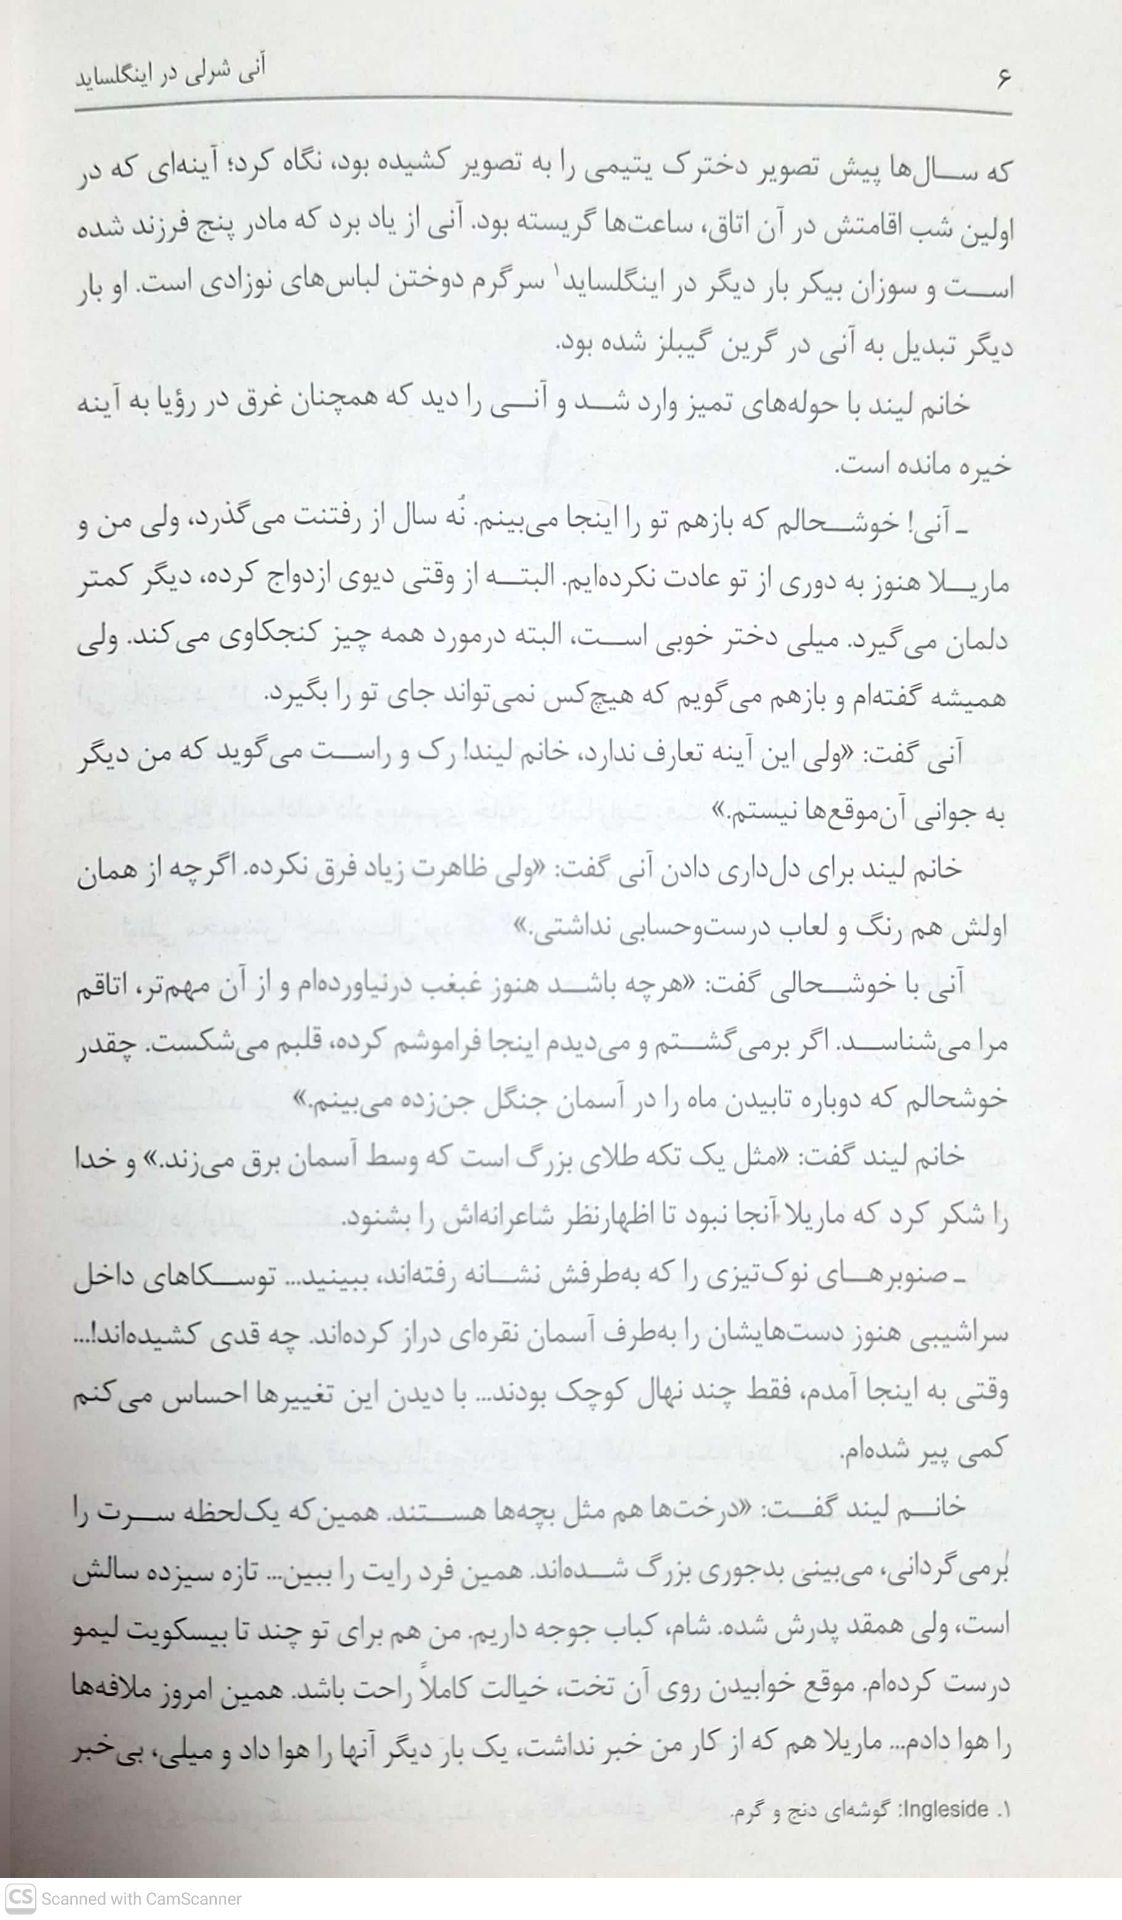 ۶
آنی شرلی در اینگلساید
که سال‌ها پیش تصویر دخترک یتیمی را به تصویر کشیده بود، نگاه کرد؛ آینه‌ای که در
اولین شب اقامتش در آن اتاق، ساعت‌ها گریسته بود. آنی از یاد برد که مادر پنج فرزند شده
است و سوزان بیکر بار دیگر در اینگلساید۱ سرگرم دوختن لباس‌های نوزادی است. او بار
دیگر تبدیل به آنی در گرین گیبلز شده بود.
خانم لیند با حوله‌های تمیز وارد شد و آنی را دید که همچنان غرق در رؤیا به آینه
خیره مانده است.
ـ آنی! خوشحالم که بازهم تو را اینجا می‌بینم. نُه سال از رفتنت می‌گذرد، ولی من و
ماریلا هنوز به دوری از تو عادت نکرده‌ایم. البته از وقتی دیوی ازدواج کرده، دیگر کمتر
دلمان می‌گیرد. میلی دختر خوبی است، البته درمورد همه چیز کنجکاوی می‌کند. ولی
همیشه گفته‌ام و بازهم می‌گویم که هیچ‌کس نمی‌تواند جای تو را بگیرد.
آنی گفت: «ولی این آینه تعارف ندارد، خانم لیند! رک و راست می‌گوید که من دیگر
به جوانی آن‌موقع‌ها نیستم.»
خانم لیند برای دل‌داری دادن آنی گفت: «ولی ظاهرت زیاد فرق نکرده. اگرچه از همان
اولش هم رنگ و لعاب درست‌وحسابی نداشتی.»
آنی با خوشحالی گفت: «هرچه باشد هنوز غبغب درنیاورده‌ام و از آن مهم‌تر، اتاقم
مرا می‌شناسد. اگر برمی‌گشتم و می‌دیدم اینجا فراموشم کرده، قلبم می‌شکست. چقدر
خوشحالم که دوباره تابیدن ماه را در آسمان جنگل جن‌زده می‌بینم.»
خانم لیند گفت: «مثل یک تکه طلای بزرگ است که وسط آسمان برق می‌زند.» و خدا
را شکر کرد که ماریلا آنجا نبود تا اظهارنظر شاعرانه‌اش را بشنود.
ـ صنوبرهای نوک‌تیزی را که به‌طرفش نشانه رفته‌اند، ببینید... توسکاهای داخل
سراشیبی هنوز دست‌هایشان را به‌طرف آسمان نقره‌ای دراز کرده‌اند. چه قدی کشیده‌اند!...
وقتی به اینجا آمدم، فقط چند نهال کوچک بودند... با دیدن این تغییرها احساس می‌کنم
کمی پیر شده‌ام.
خانم لیند گفت: «درخت‌ها هم مثل بچه‌ها هستند. همین‌که یک‌لحظه سرت را
برمی‌گردانی، می‌بینی بدجوری بزرگ شده‌اند. همین فرد رایت را ببین... تازه سیزده سالش
است، ولی همقد پدرش شده. شام، کباب جوجه داریم. من هم برای تو چند تا بیسکویت لیمو
درست کرده‌ام. موقع خوابیدن روی آن تخت، خیالت کاملاً راحت باشد. همین امروز ملافه‌ها
را هوا دادم... ماریلا هم که از کار من خبر نداشت، یک بار دیگر آنها را هوا داد و میلی، بی‌خبر
۱. Ingleside: گوشه‌ای دنج و گرم.
CS Scanned with CamScanner